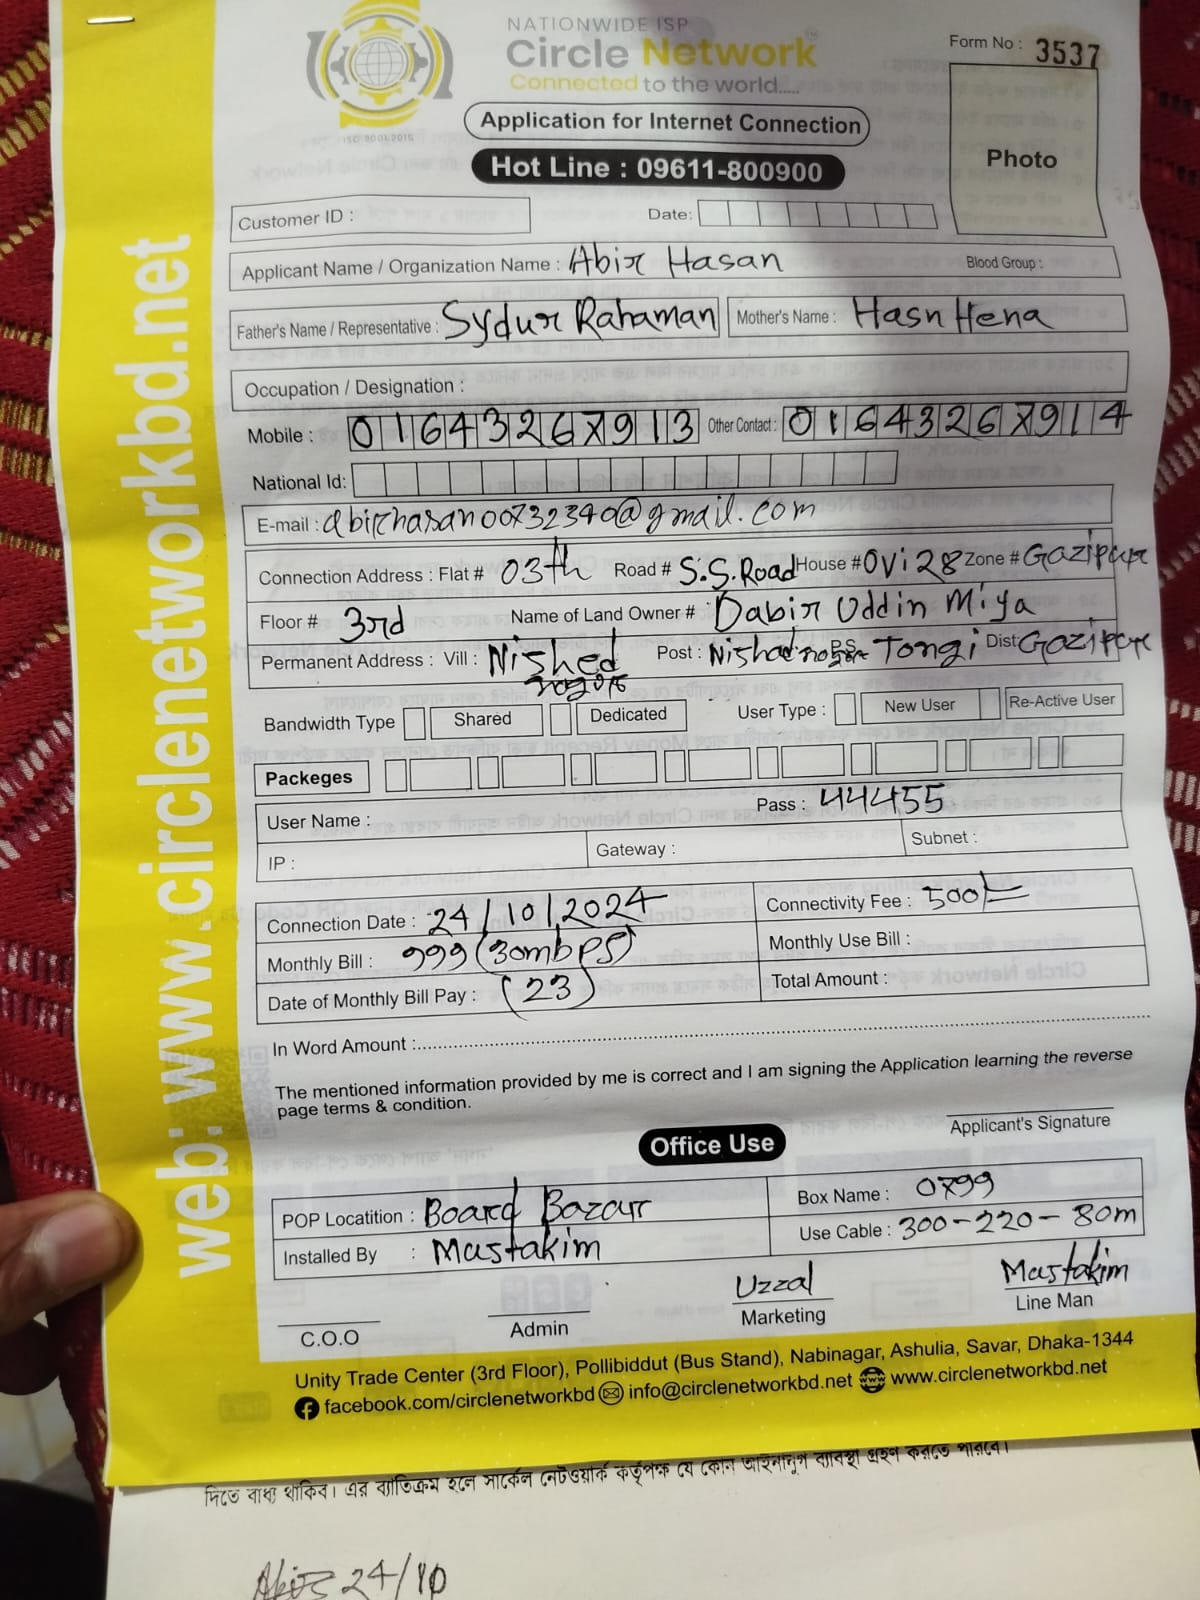 NATIONWIDE ISP
Circle Network
Connected to the world.....
ISO 9001:2015
Form No : 3537
Application for Internet Connection
Photo
Hot Line : 09611-800900
Customer ID :
Date:
Applicant Name / Organization Name : Abir Hasan Blood Group :
Father's Name / Representative : Sydur Rahaman Mother's Name : Hasn Hena
Occupation / Designation :
Mobile : 01643267913 Other Contact : 01643267914
National Id:
E-mail : abirhasan00732340@gmail.com
Connection Address : Flat # 03th Road # S.S.Road House # Ovi 28 Zone # Gazipur
Floor # 3rd Name of Land Owner # Dabir Uddin Miya
Permanent Address : Vill : Nished Post : P.S. Tongi Dist Gazipur
Bandwidth Type Shared Dedicated User Type : New User Re-Active User
Packeges
User Name : Pass : 44455
IP : Gateway : Subnet :
Connection Date : 24/10/2024 Connectivity Fee : 500/=
Monthly Bill : 999 (30mbps) Monthly Use Bill :
Date of Monthly Bill Pay : (23) Total Amount :
In Word Amount :
The mentioned information provided by me is correct and I am signing the Application learning the reverse
page terms & condition.
Applicant's Signature
Office Use
POP Locatition : Board Bazar Box Name : 0799
Installed By : Mastakim Use Cable : 300-220-80m
Uzzal Mastakim
C.O.O Admin Marketing Line Man
Unity Trade Center (3rd Floor), Pollibiddut (Bus Stand), Nabinagar, Ashulia, Savar, Dhaka-1344
facebook.com/circlenetworkbd info@circlenetworkbd.net www.circlenetworkbd.net
web: www.circlenetworkbd.net
দিতে বাধ্য থাকিব। এর ব্যতিক্রম হলে সার্কেল নেটওয়ার্ক কর্তৃপক্ষ যে কোন আইনানুগ ব্যবস্থা গ্রহণ করতে পারবে।
24/10